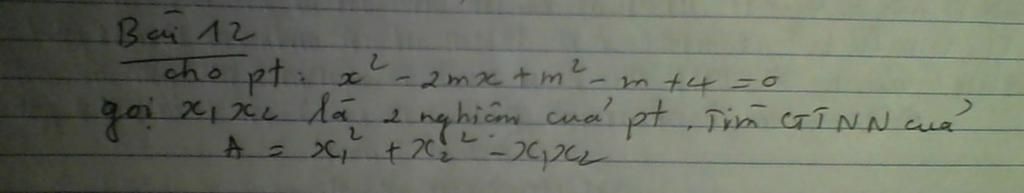 Bài 12
cho pt: x² - 2mx + m² - m + 4 = 0
gọi x₁ x₂ là 2 nghiệm của pt. Tìm GTNN của
A = x₁² + x₂² - x₁x₂